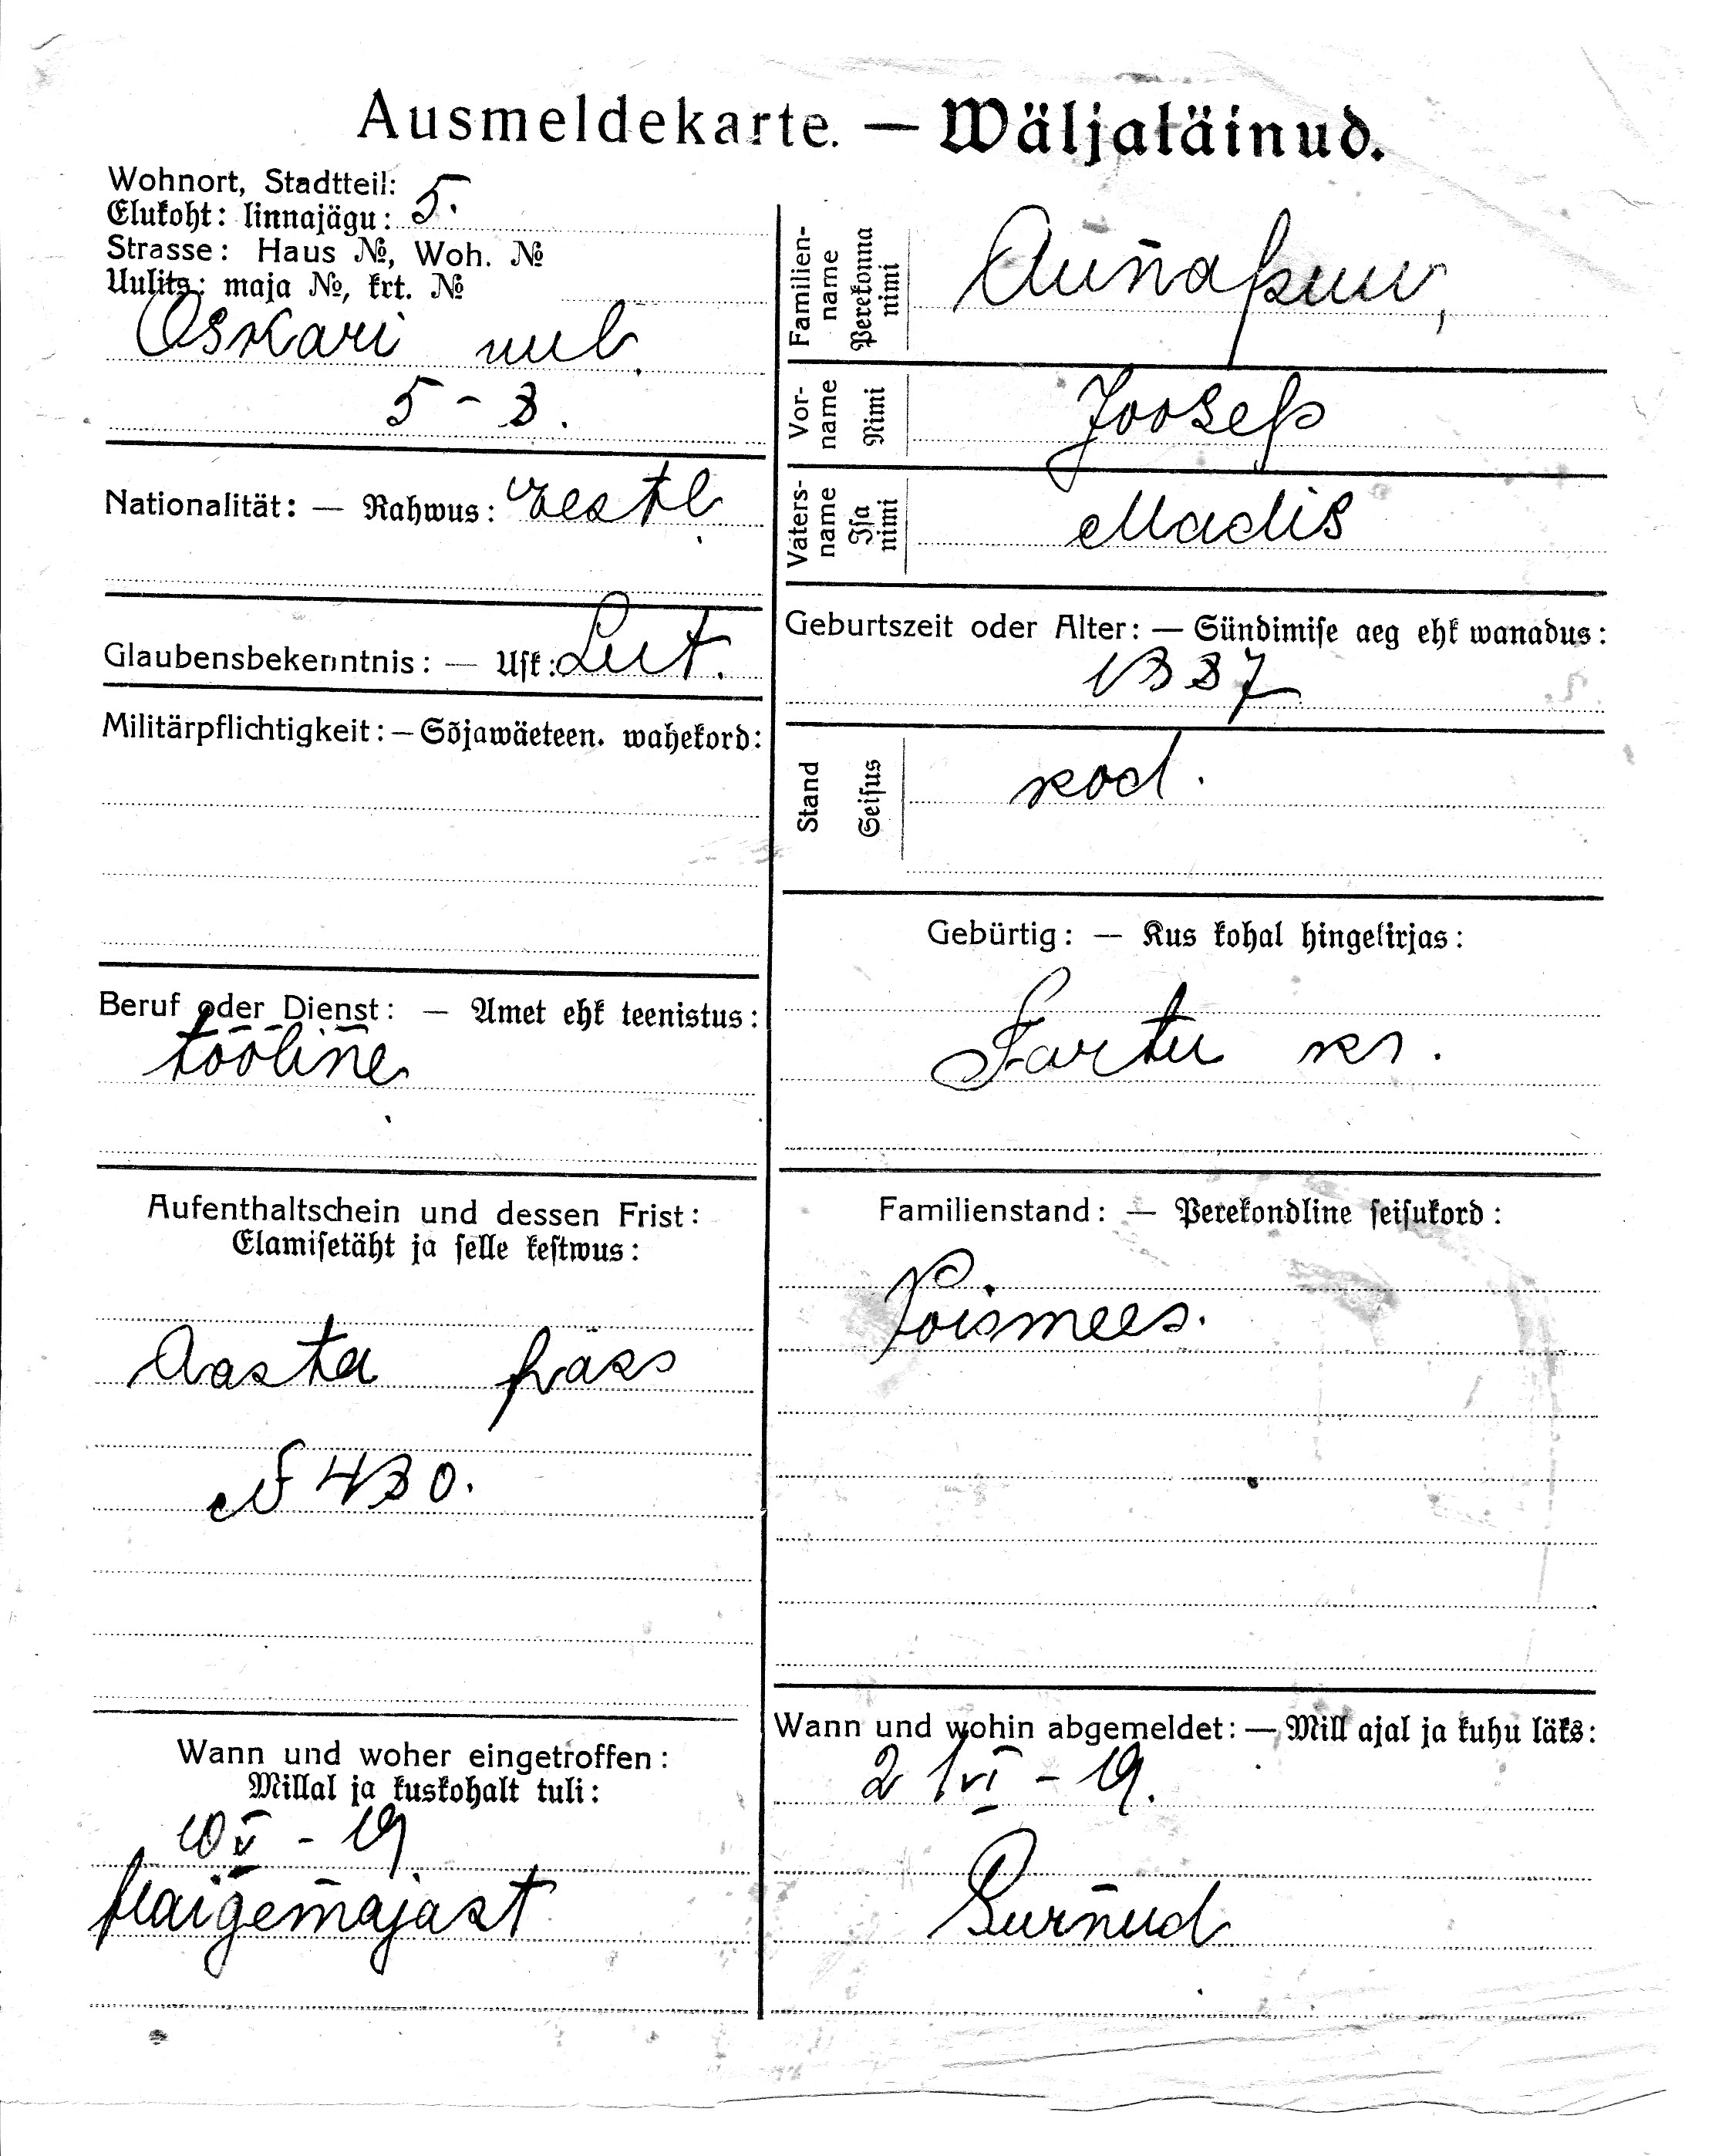 Ausmeldekarte. — Wäljaläinud.
Wohnort, Stadtteil:
Elukoht: linnajägu: 5.
Strasse: Haus №, Woh. №
Uulits: maja №, krt. №
Oskari uul.
5 - 3.
Nationalität: — Rahwus: Eestl.
Glaubensbekenntnis: — Usk: Lut.
Militärpflichtigkeit: — Sõjawäeteen. wahekord:
Beruf oder Dienst: — Amet ehk teenistus:
tööline
Aufenthaltschein und dessen Frist:
Elamisetäht ja selle kestwus:
Aasta pass
№ 430.
Wann und woher eingetroffen:
Millal ja kuskohalt tuli:
10 V - 19
Haigemajast
Familienname
Perekonna nimi
Aunapuu,
Vorname
Nimi
Joosep
Vatersname
Isa nimi
Madis
Geburtszeit oder Alter: — Sündimise aeg ehk wanadus:
1887
Stand
Seisus
kod.
Gebürtig: — Kus kohal hingekirjas:
Tartu kr.
Familienstand: — Perekondline seisukord:
Poismees.
Wann und wohin abgemeldet: — Mill ajal ja kuhu läks:
2 / VI - 19.
Surnud